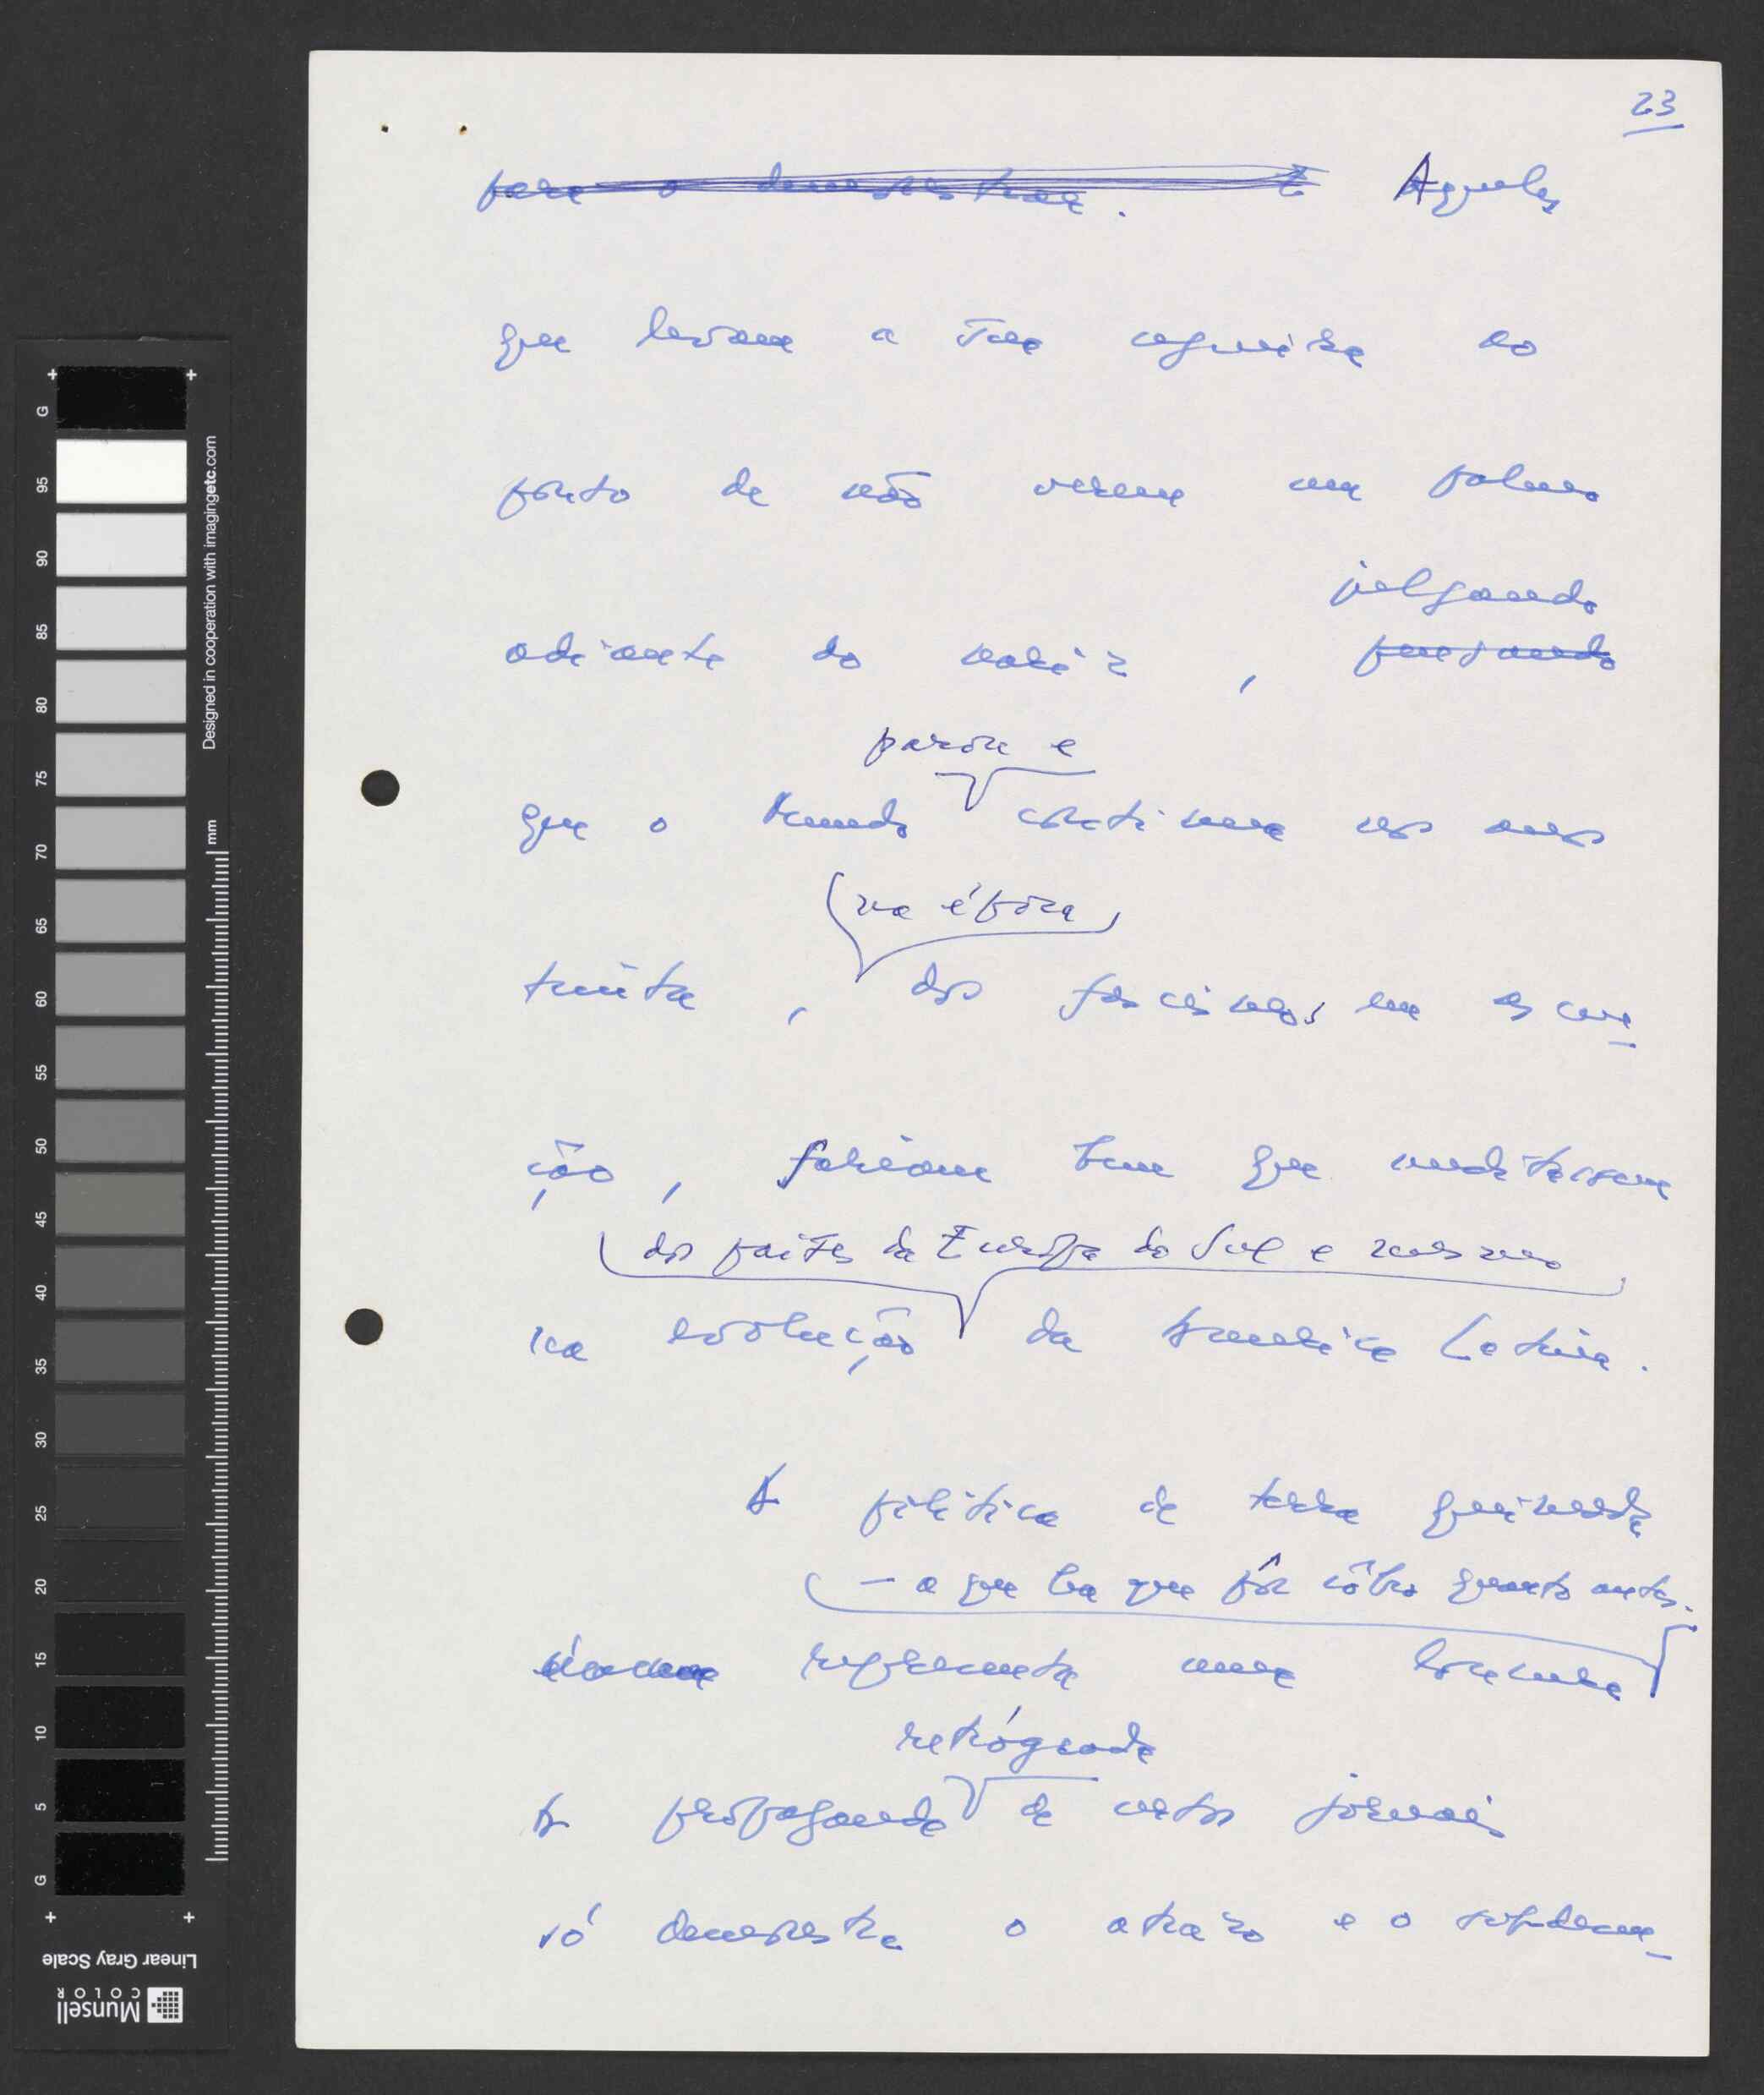 23
para o demonstrar. E Aqueles
que levam a sua cegueira ao
ponto de não verem um palmo
julgando
adiante do nariz, pensando
parou e
que o mundo continua nos anos
(na época)
trinta, dos fascismos em ascen-
ção, fariam bem que meditassem
dos países da Europa do Sul e mesmo
na evolução da America Latina.
A politica de terra queimada
— a que há que pôr côbro quanto antes.
representa uma loucura
retrógrada
A propaganda de certos jornais
só demonstra o atrazo e o
G
95
90
85
80
75
70
65
60
55
50
45
40
35
30
25
20
15
10
5
G
mm
Designed in cooperation with imagingetc.com
Linear Gray Scale
Munsell
COLOR